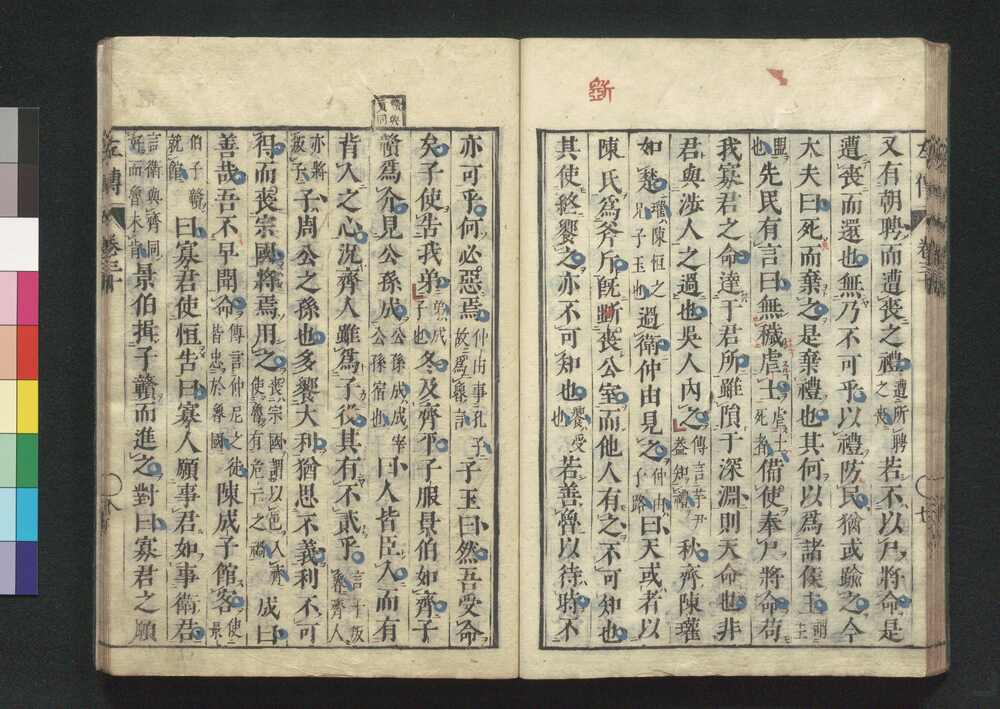 斲
左傳 卷三十 廿
又有朝聘而遭喪之禮遭所聘之喪若不以尸將命是
遭喪而還也無乃不可乎以禮防民猶或踰之今
大夫曰死而棄之是棄禮也其何以爲諸侯主謂主
盟也先民有言曰無穢虐士虐士死者備使奉尸將命苟
我寡君之命達于君所雖隕于深淵則天命也非
君與涉人之過也吳人內之傳言芋尹蓋知禮秋齊陳瓘
如楚瓘陳恒之兄子玉也過衛仲由見之仲由子路曰天或者以
陳氏爲斧斤旣斷喪公室而他人有之不可知也
其使終饗之亦不可知也饗受也若善魯以待時不
亦可乎何必惡焉仲由事孔子故爲魯言子玉曰然吾受命
矣子使告我弟弟成子也冬及齊平子服景伯如齊子
贛爲介見公孫成公孫成成宰公孫宿也曰人皆臣人而有
背人之心況齊人雖爲子役其有不貳乎言子叛魯齊人
亦將叛子子周公之孫也多饗大利猶思不義利不可
得而喪宗國將焉用之喪宗國謂以邑入齊使魯有危亡之禍成曰
善哉吾不早聞命傳言仲尼之徒皆忠於魯國陳成子館客使景
伯子贛就館曰寡君使恒告曰寡人願事君如事衛君
言衛與齊同好而魯未肯景伯揖子贛而進之對曰寡君之願
左傳 卷三十